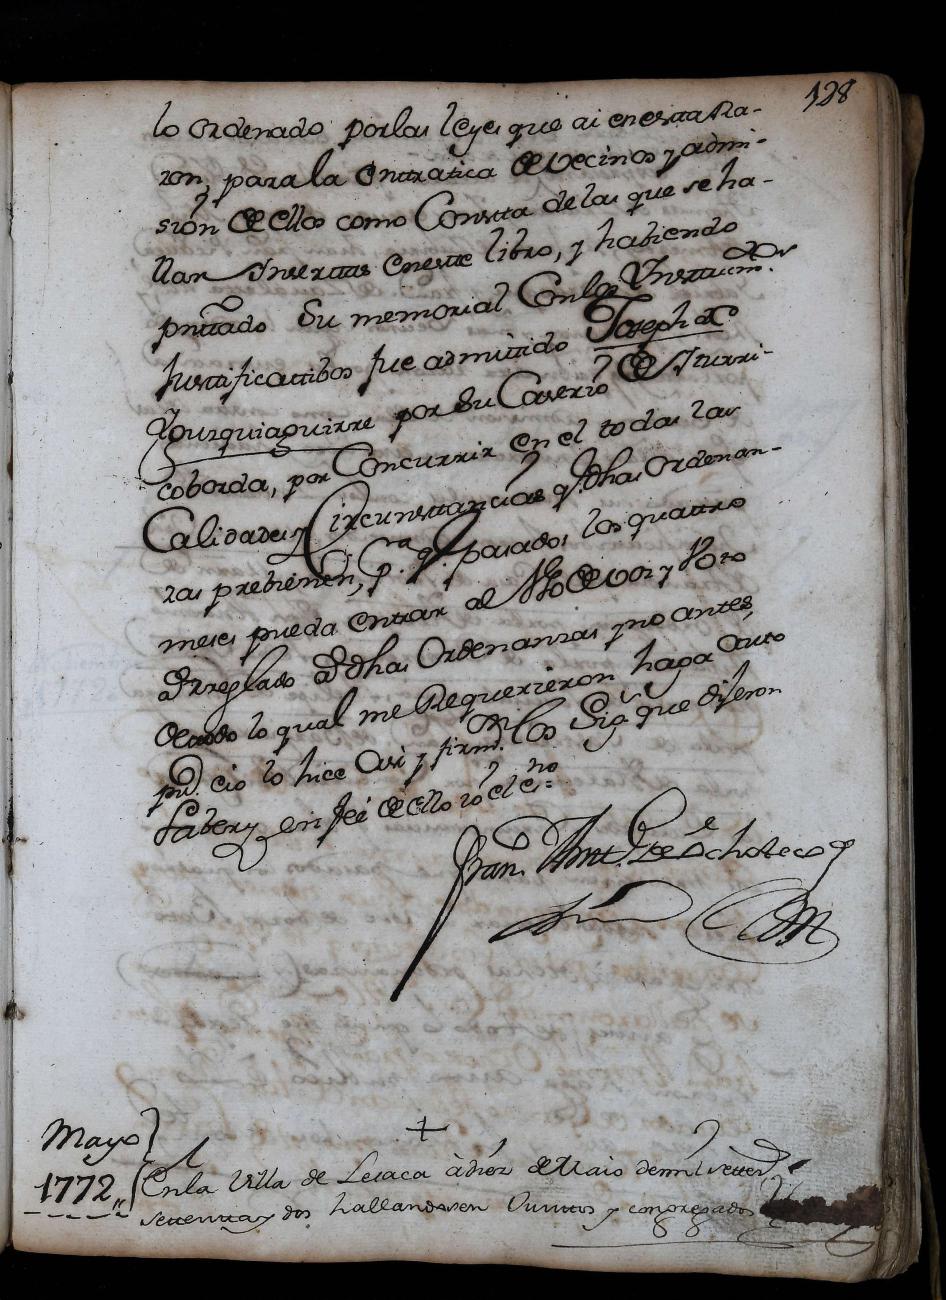 128
lo ordenado por las leyes que ai en esta Ra-
zon, para la entratica de vecinos y admi-
sion de ellos como Consta de las que se ha-
llan Insertas en este libro, y habiendo
pnttado Su memorial Con los Instrum.tos
Justificattibos fue admittido Joseph de
Yourquiaguirre por Su Caserio de Iturri-
coborda, por Concurrir en el todas las
Calidades y Circunsttancias q.e dhas Ordenan-
zas prebienen, p.a q.e pasados los quattro
meses pueda entrar al Uso de voz y Voto
arreglado a dhas Ordenanzas y no antes,
de todo lo qual me Requerieron haga auto
y lo hice Asi y firm.n los Sig.s que dijeron
Saber y en fee de ello yo el es.no
Fran.co Antt.o de Ochoteco
Mayo
1772
+
En la Villa de Lesaca à diez de Maio de mil settez.s
settenta y dos hallandosen Junttos y congregados